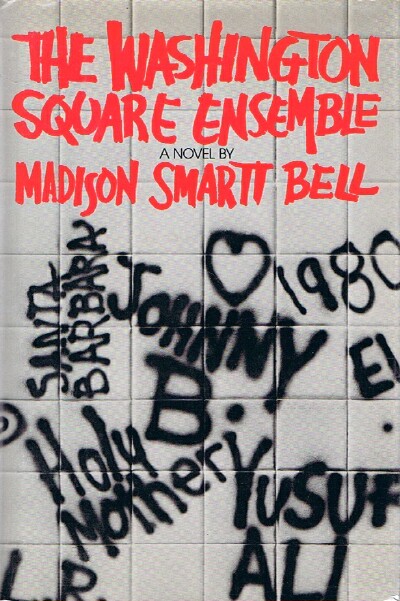 THE WASHINGTON
SQUARE ENSEMBLE
A NOVEL BY
MADISON SMARTT BELL
SANTA
BARBARA
JOHNNY
B.
1980
El
Holy
Mother
YUSUF
ALI
L.R.